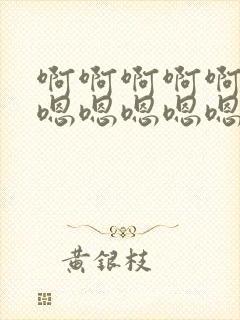 啊啊啊啊啊
嗯嗯嗯嗯嗯
黄银枝